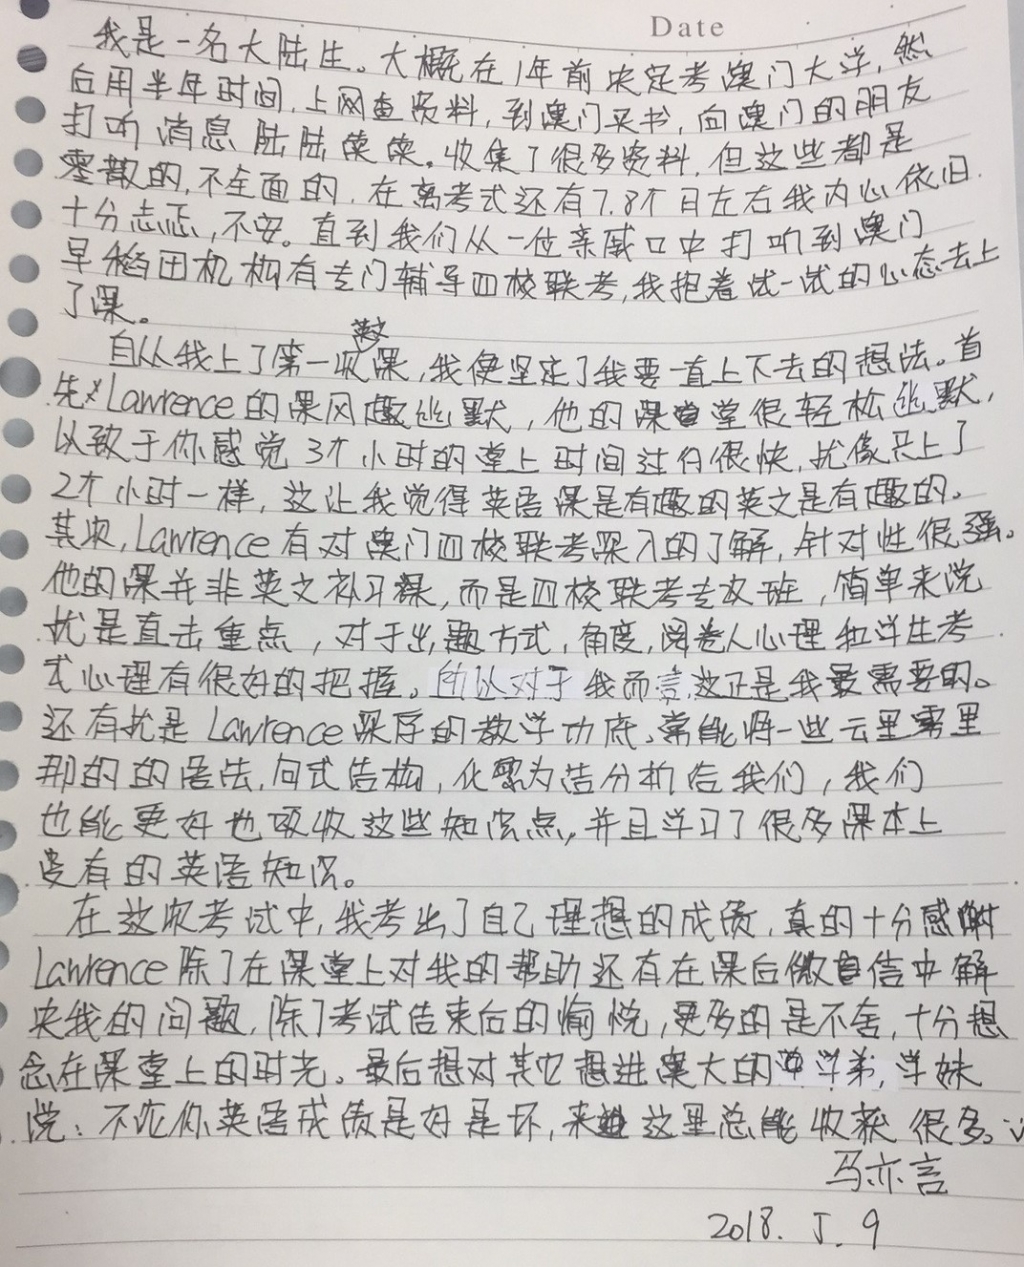 Date
我是一名大陆生。大概在1年前决定考澳门大学，然
后用半年时间，上网查资料，到澳门买书，向澳门的朋友
打听消息陆陆续续。收集了很多资料，但这些都是
零散的，不全面的，在离考式还有7.8个月左右我内心依旧
十分忐忑，不安。直到我们从一位亲戚口中打听到澳门
早稻田机构有专门辅导四校联考，我抱着试一试的心态去上
了课。
自从我上了第一次英文课，我便坚定了我要一直上下去的想法。首
先Lawrence的课风趣幽默，他的课堂很轻松幽默，
以致于你感觉3个小时的堂上时间过得很快，犹像只上了
2个小时一样，这让我觉得英语课是有趣的英文是有趣的。
其次，Lawrence有对澳门四校联考深入的了解，针对性很强。
他的课并非英文补习课，而是四校联考专攻班，简单来说
犹是直击重点，对于出题方式，角度，阅卷人心理和学生考
式心理有很好的把握。所以对于我而言这正是我最需要的。
还有犹是Lawrence深厚的教学功底，常能将一些云里雾里
那的的语法，句式结构，化繁为洁分析给我们，我们
也能更好也吸收这些知识点，并且学习了很多课本上
没有的英语知识。
在这次考试中，我考出了自己理想的成绩，真的十分感谢
Lawrence除了在课堂上对我的帮助还有在课后微信中解
决我的问题，除了考试结束后的愉悦，更多的是不舍，十分想
念在课堂上的时光。最后想对其它想进澳大的学弟，学妹
说：不论你英语成绩是好是坏，来这里总能收获很多。
马亦言
2018. 5. 9